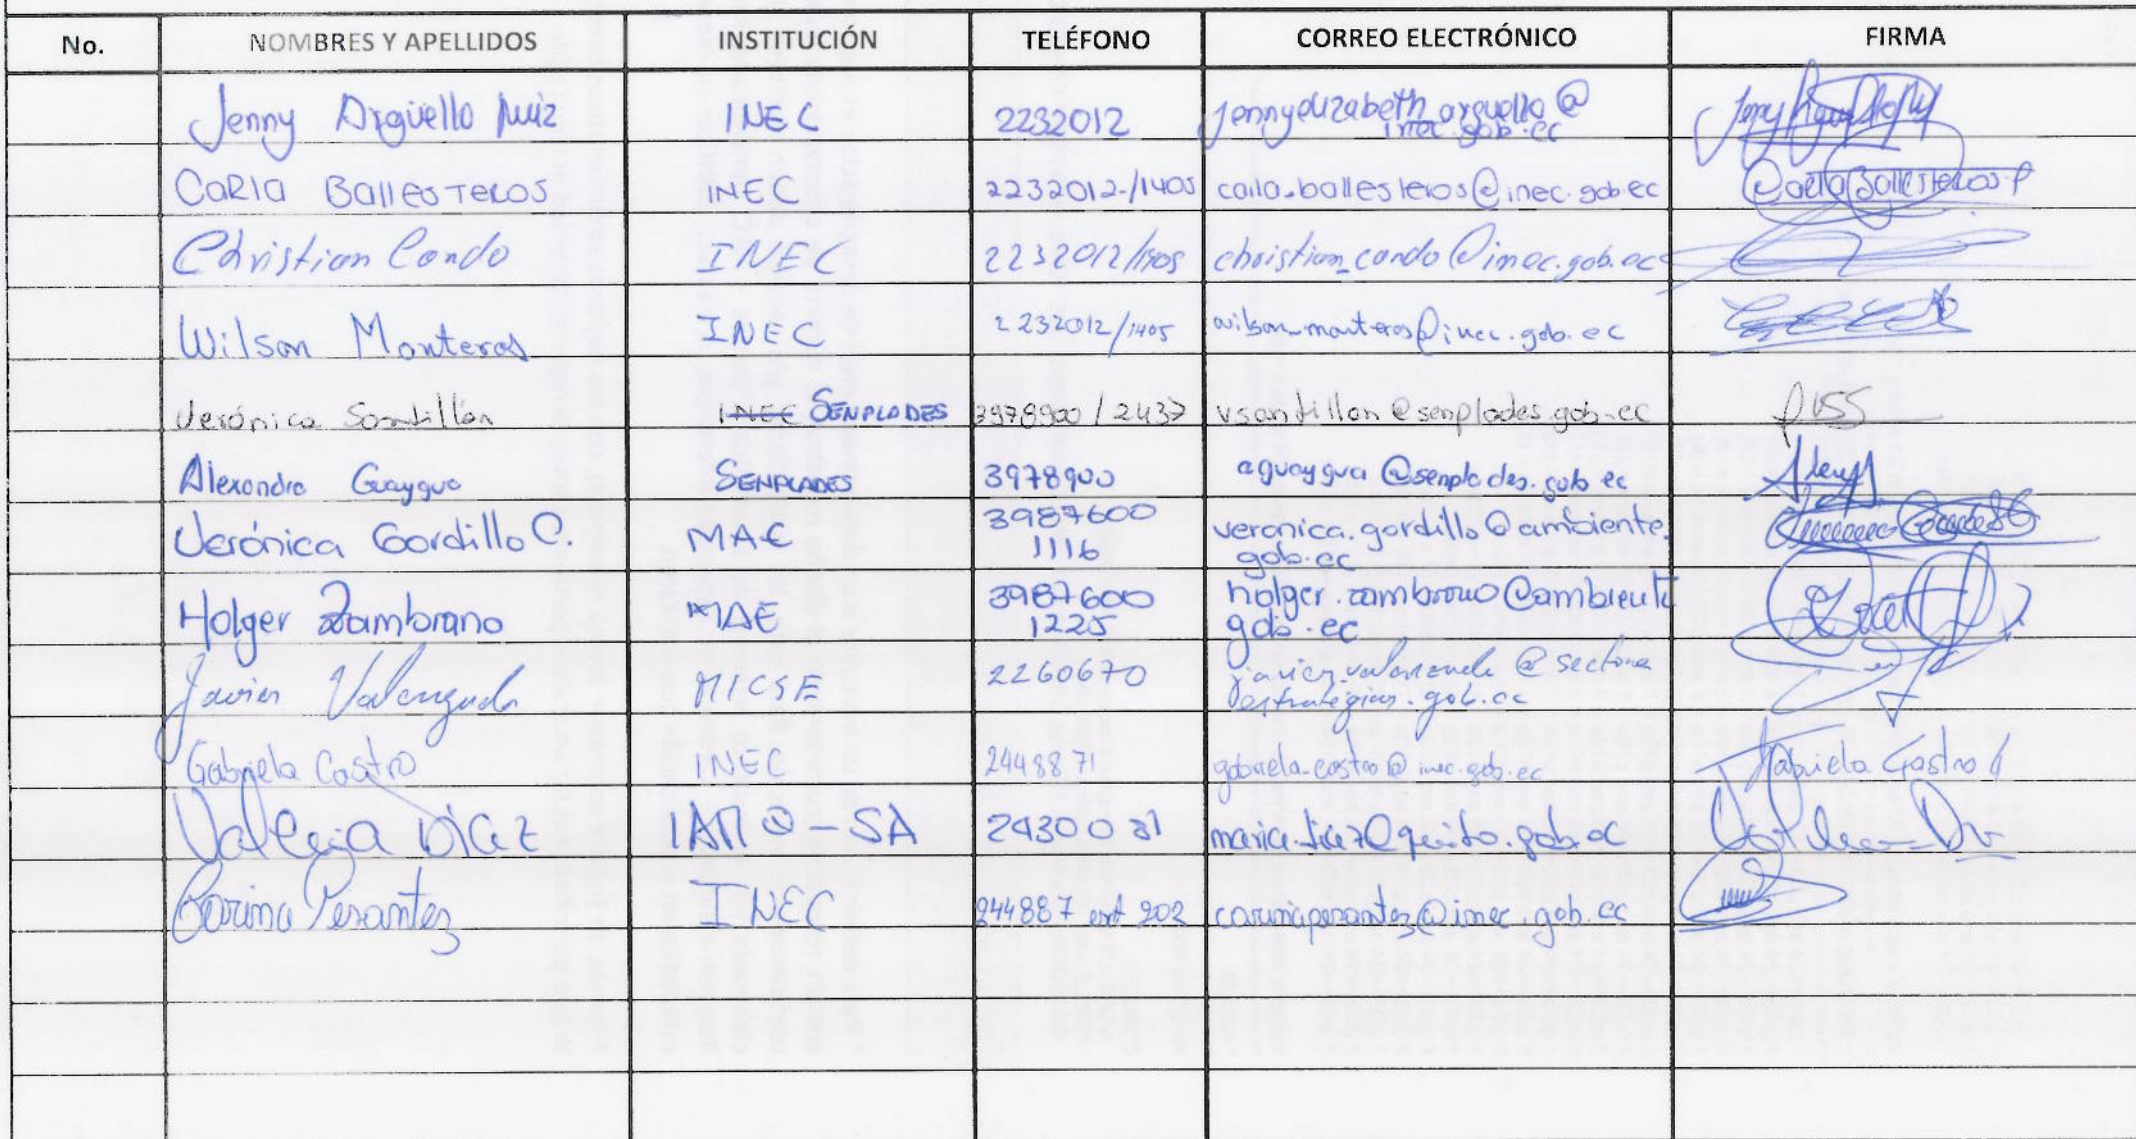 No. NOMBRES Y APELLIDOS INSTITUCIÓN TELÉFONO CORREO ELECTRÓNICO FIRMA
Jenny Argüello Ruiz INEC 2232012 jennyelizabeth_arguello@
inec.gob.ec
CARLA BALLESTEROS INEC 2232012-/1405 carla-ballesteros@inec.gob.ec Carla Ballesteros P
Christian Condo INEC 2232012/1405 christian_condo@inec.gob.ec
Wilson Monteros INEC 2232012/1405 wilson_monteros@inec.gob.ec
Verónica Santillán INEC SENPLADES 3978900/2437 vsantillan@senplades.gob.ec
Alexandra Guaygua SENPLADES 3978900 aguaygua@senplades.gob.ec
Verónica Gordillo C. MAE 3987600 veronica.gordillo@ambiente.
1116 gob.ec
Holger Zambrano MAE 3987600 holger.zambrano@ambiente
1225 gob.ec
Javier Valenzuela MICSE 2260670 javier.valenzuela@sectores
estrategicos.gob.ec
Gabriela Castro INEC 2448871 gabriela_castro@inec.gob.ec Gabriela Castro
Valeria Díaz 2430031 maria.diaz@quito.gob.ec
Carina Pesantez INEC 244887 ext 202 carinapesantez@inec.gob.ec